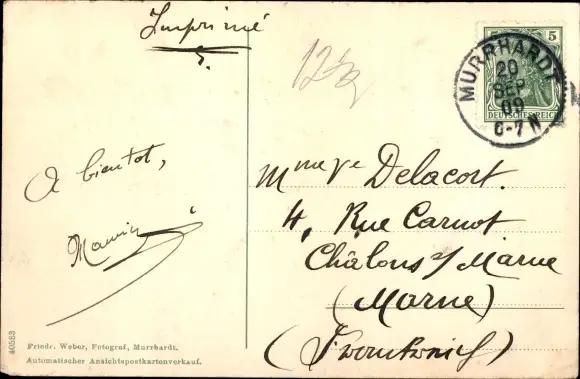 Imprimé
5 5
DEUTSCHES REICH
MURRHARDT
20
SEP
09
6-7 N
12½
A bientot,
Mme Ve Delacort.
4, Rue Carnot
Châlons s/ Marne
(Marne)
(Frankreich)
40583
Friedr. Weber, Fotograf, Murrhardt.
Automatischer Ansichtspostkartenverkauf.